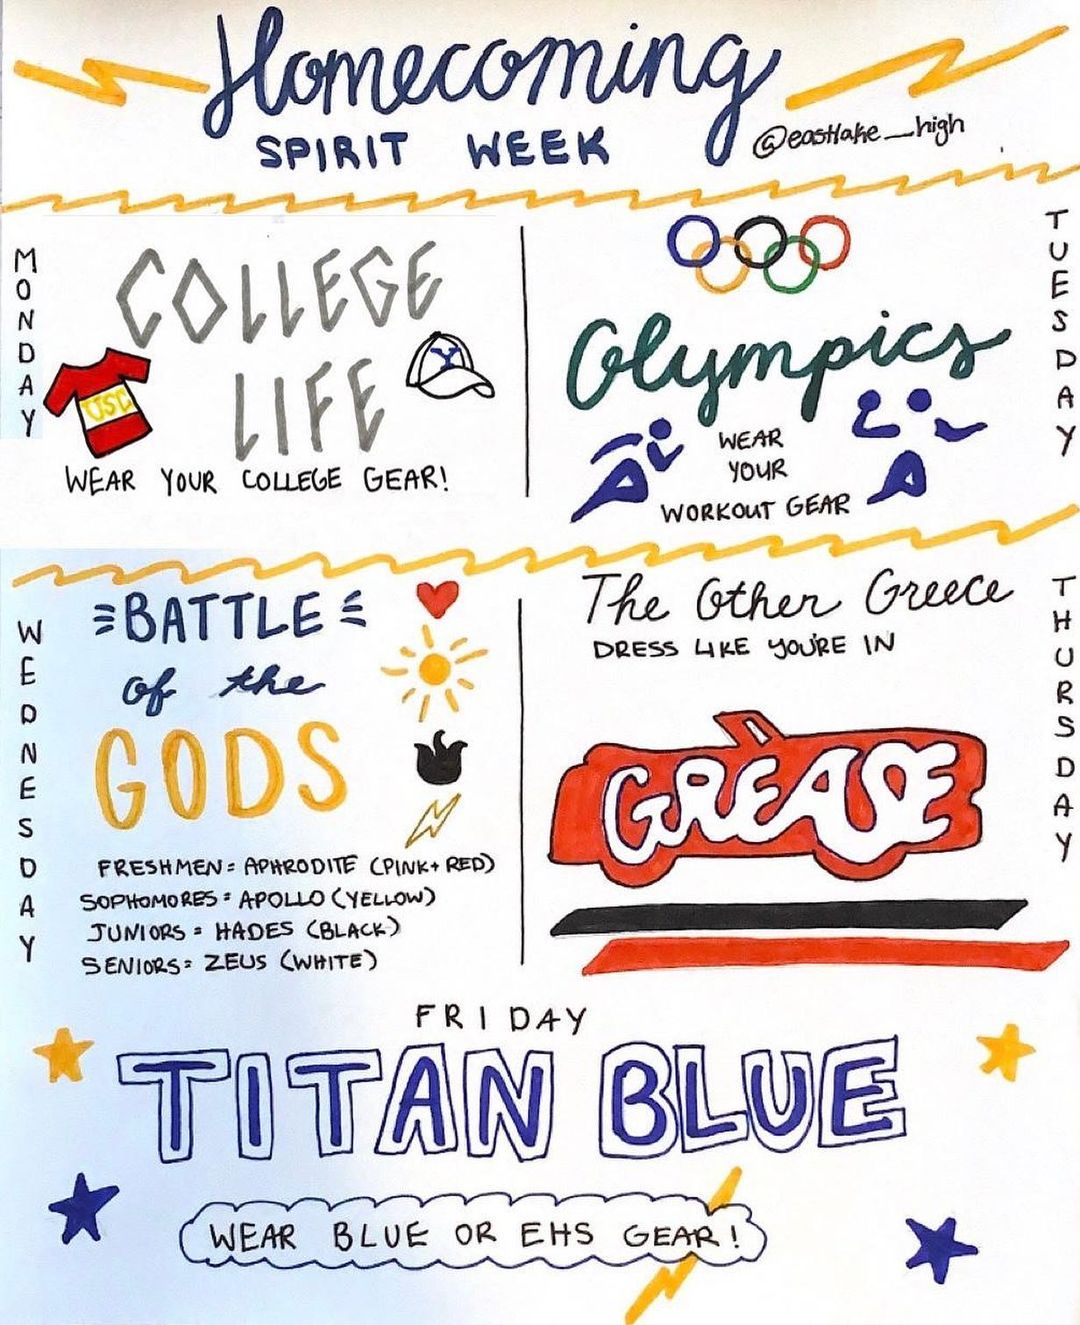 Homecoming
SPIRIT WEEK
@eastlake_high
MONDAY
COLLEGE
LIFE
USC
Y
WEAR YOUR COLLEGE GEAR!
TUESDAY
Olympics
WEAR
YOUR
WORKOUT GEAR
WEDNESDAY
BATTLE
of the
GODS
FRESHMEN = APHRODITE (PINK + RED)
SOPHOMORES = APOLLO (YELLOW)
JUNIORS = HADES (BLACK)
SENIORS = ZEUS (WHITE)
THURSDAY
The Other Greece
DRESS LIKE YOU'RE IN
GREASE
FRIDAY
TITAN BLUE
WEAR BLUE OR EHS GEAR!